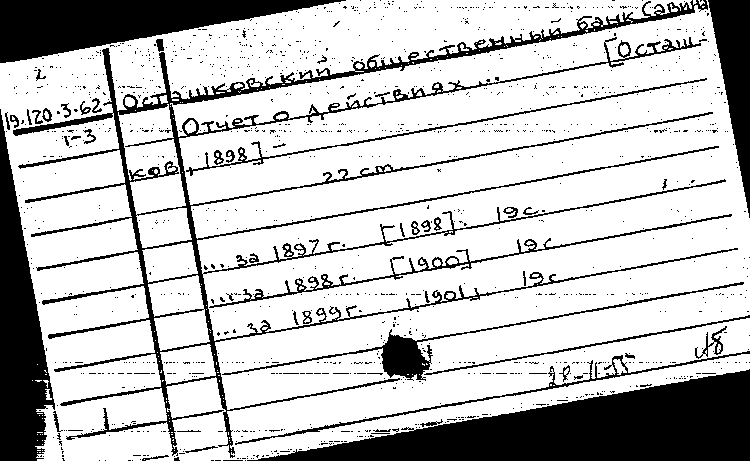 2
19.120.3.62-
1-3
Осташковский общественный банк Савина
Отчет о действиях... [Осташ-
ков, 1898] -
22 cm.
... за 1897 г. [1898]. 19 с.
... за 1898 г. [1900]. 19 с
... за 1899 г. [1901] 19 с
28-II-55